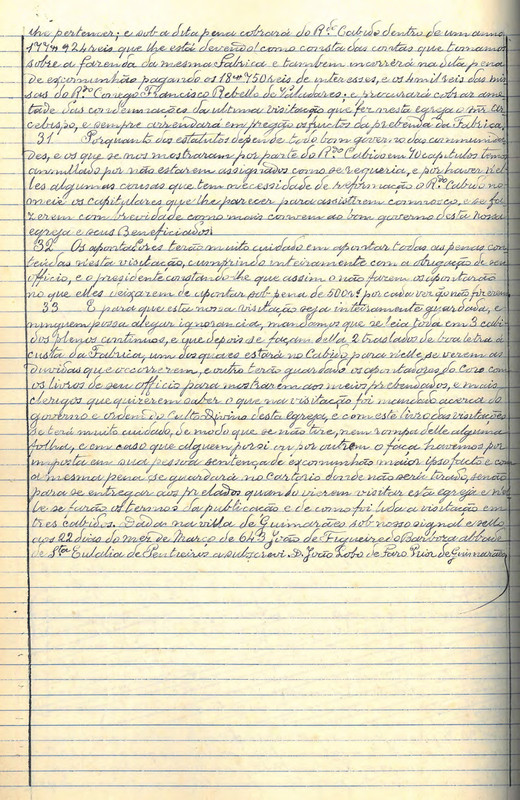 lho pertencer; e sob a dita pena cobrará do R.do Cabido dentro de um anno
177$924 reis que lhe está devendo como consta das contas que tomamos
sobre a fazenda da mesma Fabrica e tambem incorrerá na dita pena
de excomunhão pagando os 18$750 reis de interesses, e os mil reis das mis
sas do R.do Conego Francisco Rebello de Valladares; e procurará cobrar ame
tade das condemnações da ultima visitação que fez nesta egreja o snr Ar
cebispo, e sempre arrendará em pregão os fructos da prebenda da Fabrica,
31 Porquanto dos estatutos depende todo bom governo das communida
des, e os que se nos mostraram por parte do R.do Cabido sem 70 capitulos tem
annullado por não estarem assignados como se requeria, e por haver nel
les algumas cousas que tem necessidade de reformação o R.do Cabido no
meie os capitulares que lhe parecer para assistirem comnosco, e se fa
zerem com brevidade como mais convem ao bom governo desta nossa
egreja e seus Beneficiados.
32 Os apontadores terão muito cuidado em apontar todas as penas con
teudas nesta visitação, cumprindo inteiramente com a obrigação de seu
officio, e o presidente constando-lhe que assim o não fazem os apontarão
no que elles deixarem de apontar sob pena de 500 r.s por cada vez q̃ o não fizerem.
33 E para que esta nossa visitação seja inteiramente guardada, e
ninguem possa alegar ignorancia, mandamos que se leia toda em 3 cabi
dos plenos continuos, e que depois se façam della 2 traslados de boa letra á
custa da Fabrica, um dos quaes estará no Cabido para nelle se verem as
duvidas que occorrerem, e outro terão guardado os apontadores do Coro com
os livros de seu officio para mostrarem aos meios prebendados, e mais
clerigos que quizerem saber o que na visitação foi mandado acerca do
governo e ordem do Culto Divino desta Egreja, e com este livro das visitações
se terá muito cuidado, de modo que se não tire, nem rompa delle alguma
folha, e em caso que alguem por si ou por outrem o faça havemos por
imposta em sua pessoa sentença de excomunhão maior ipso facto e com
a mesma pena se guardará no Cartorio donde não será tirado, senão
para se entregar aos prelados quando vierem visitar esta egreja e nel
le se farão os termos da publicação e de como foi lida a visitação em
tres cabidos. Dada na villa de Guimarães sob nosso signal e sello
aos 22 dias do mez de Março de 643 João de Figueiredo Barboza abbade
de S.ta Eulalia de Pentieiros a subscrevi. D. João Lobo de Faro Prior de Guimarães